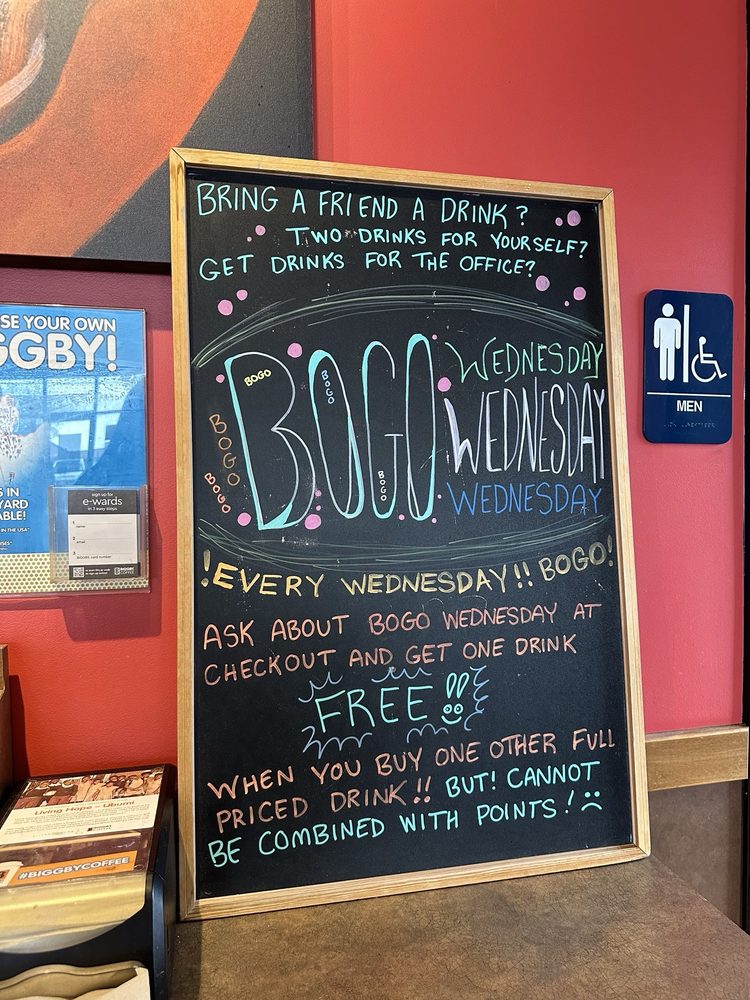 BRING A FRIEND A DRINK?
TWO DRINKS FOR YOURSELF?
GET DRINKS FOR THE OFFICE?
BOGO
BOGO
BOGO
BOGO
BOGO
BOGO
WEDNESDAY
WEDNESDAY
WEDNESDAY
!EVERY WEDNESDAY!! BOGO!
ASK ABOUT BOGO WEDNESDAY AT
CHECKOUT AND GET ONE DRINK
FREE!!
WHEN YOU BUY ONE OTHER FULL
PRICED DRINK!! BUT! CANNOT
BE COMBINED WITH POINTS!
MEN
SE YOUR OWN
GGBY!
S IN
YARD
ABLE!
IN THE USA"
sign up for
e-wards
in 3 easy steps
1 name
2 email
3 BIGGBY card number
BIGGBY
COFFEE
Living Hope - Ubumi
#BIGGBYCOFFEE